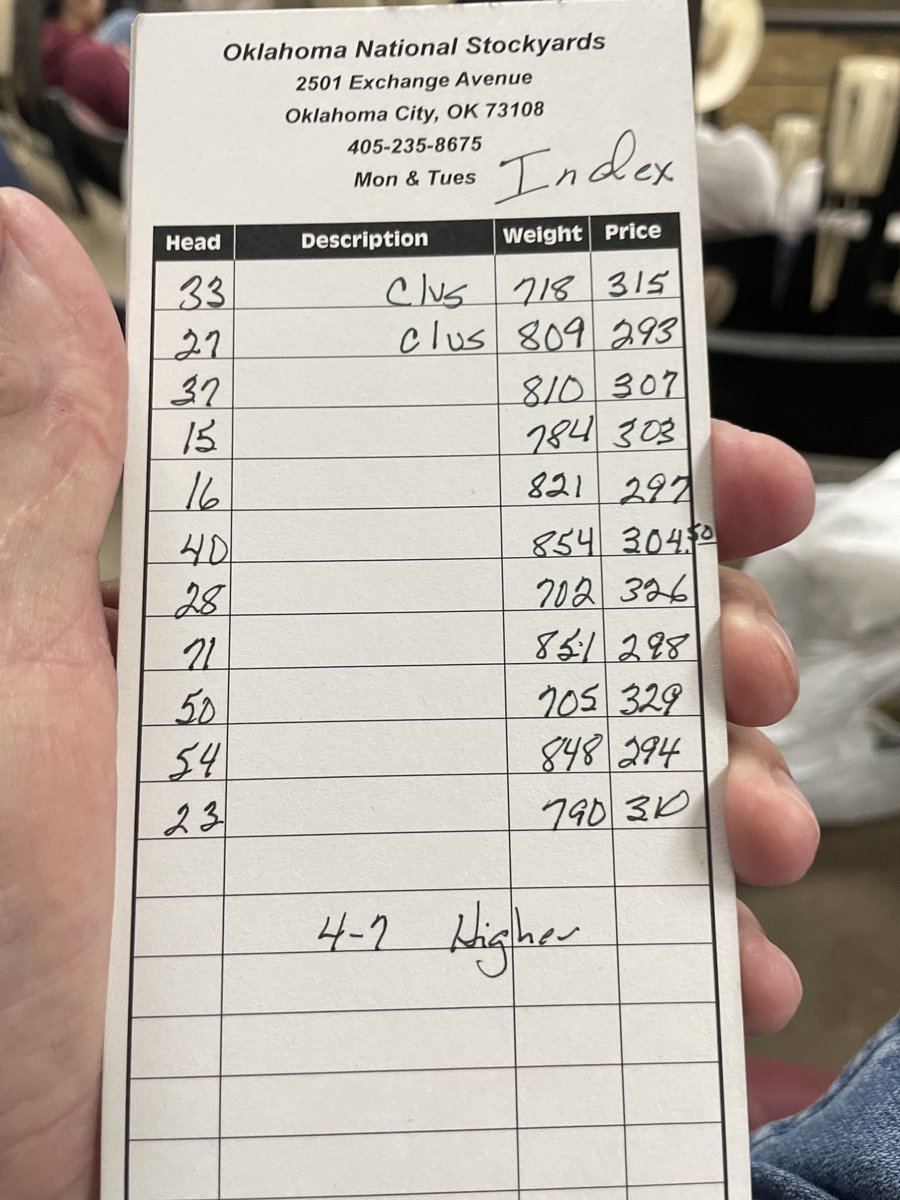 Oklahoma National Stockyards
2501 Exchange Avenue
Oklahoma City, OK 73108
405-235-8675
Mon & Tues Index
Head Description Weight Price
33 Clvs 718 315
27 Clvs 809 293
37 810 307
15 784 303
16 821 297
40 854 304.50
28 702 326
71 851 298
50 705 329
54 848 294
23 790 310
4-7 Higher